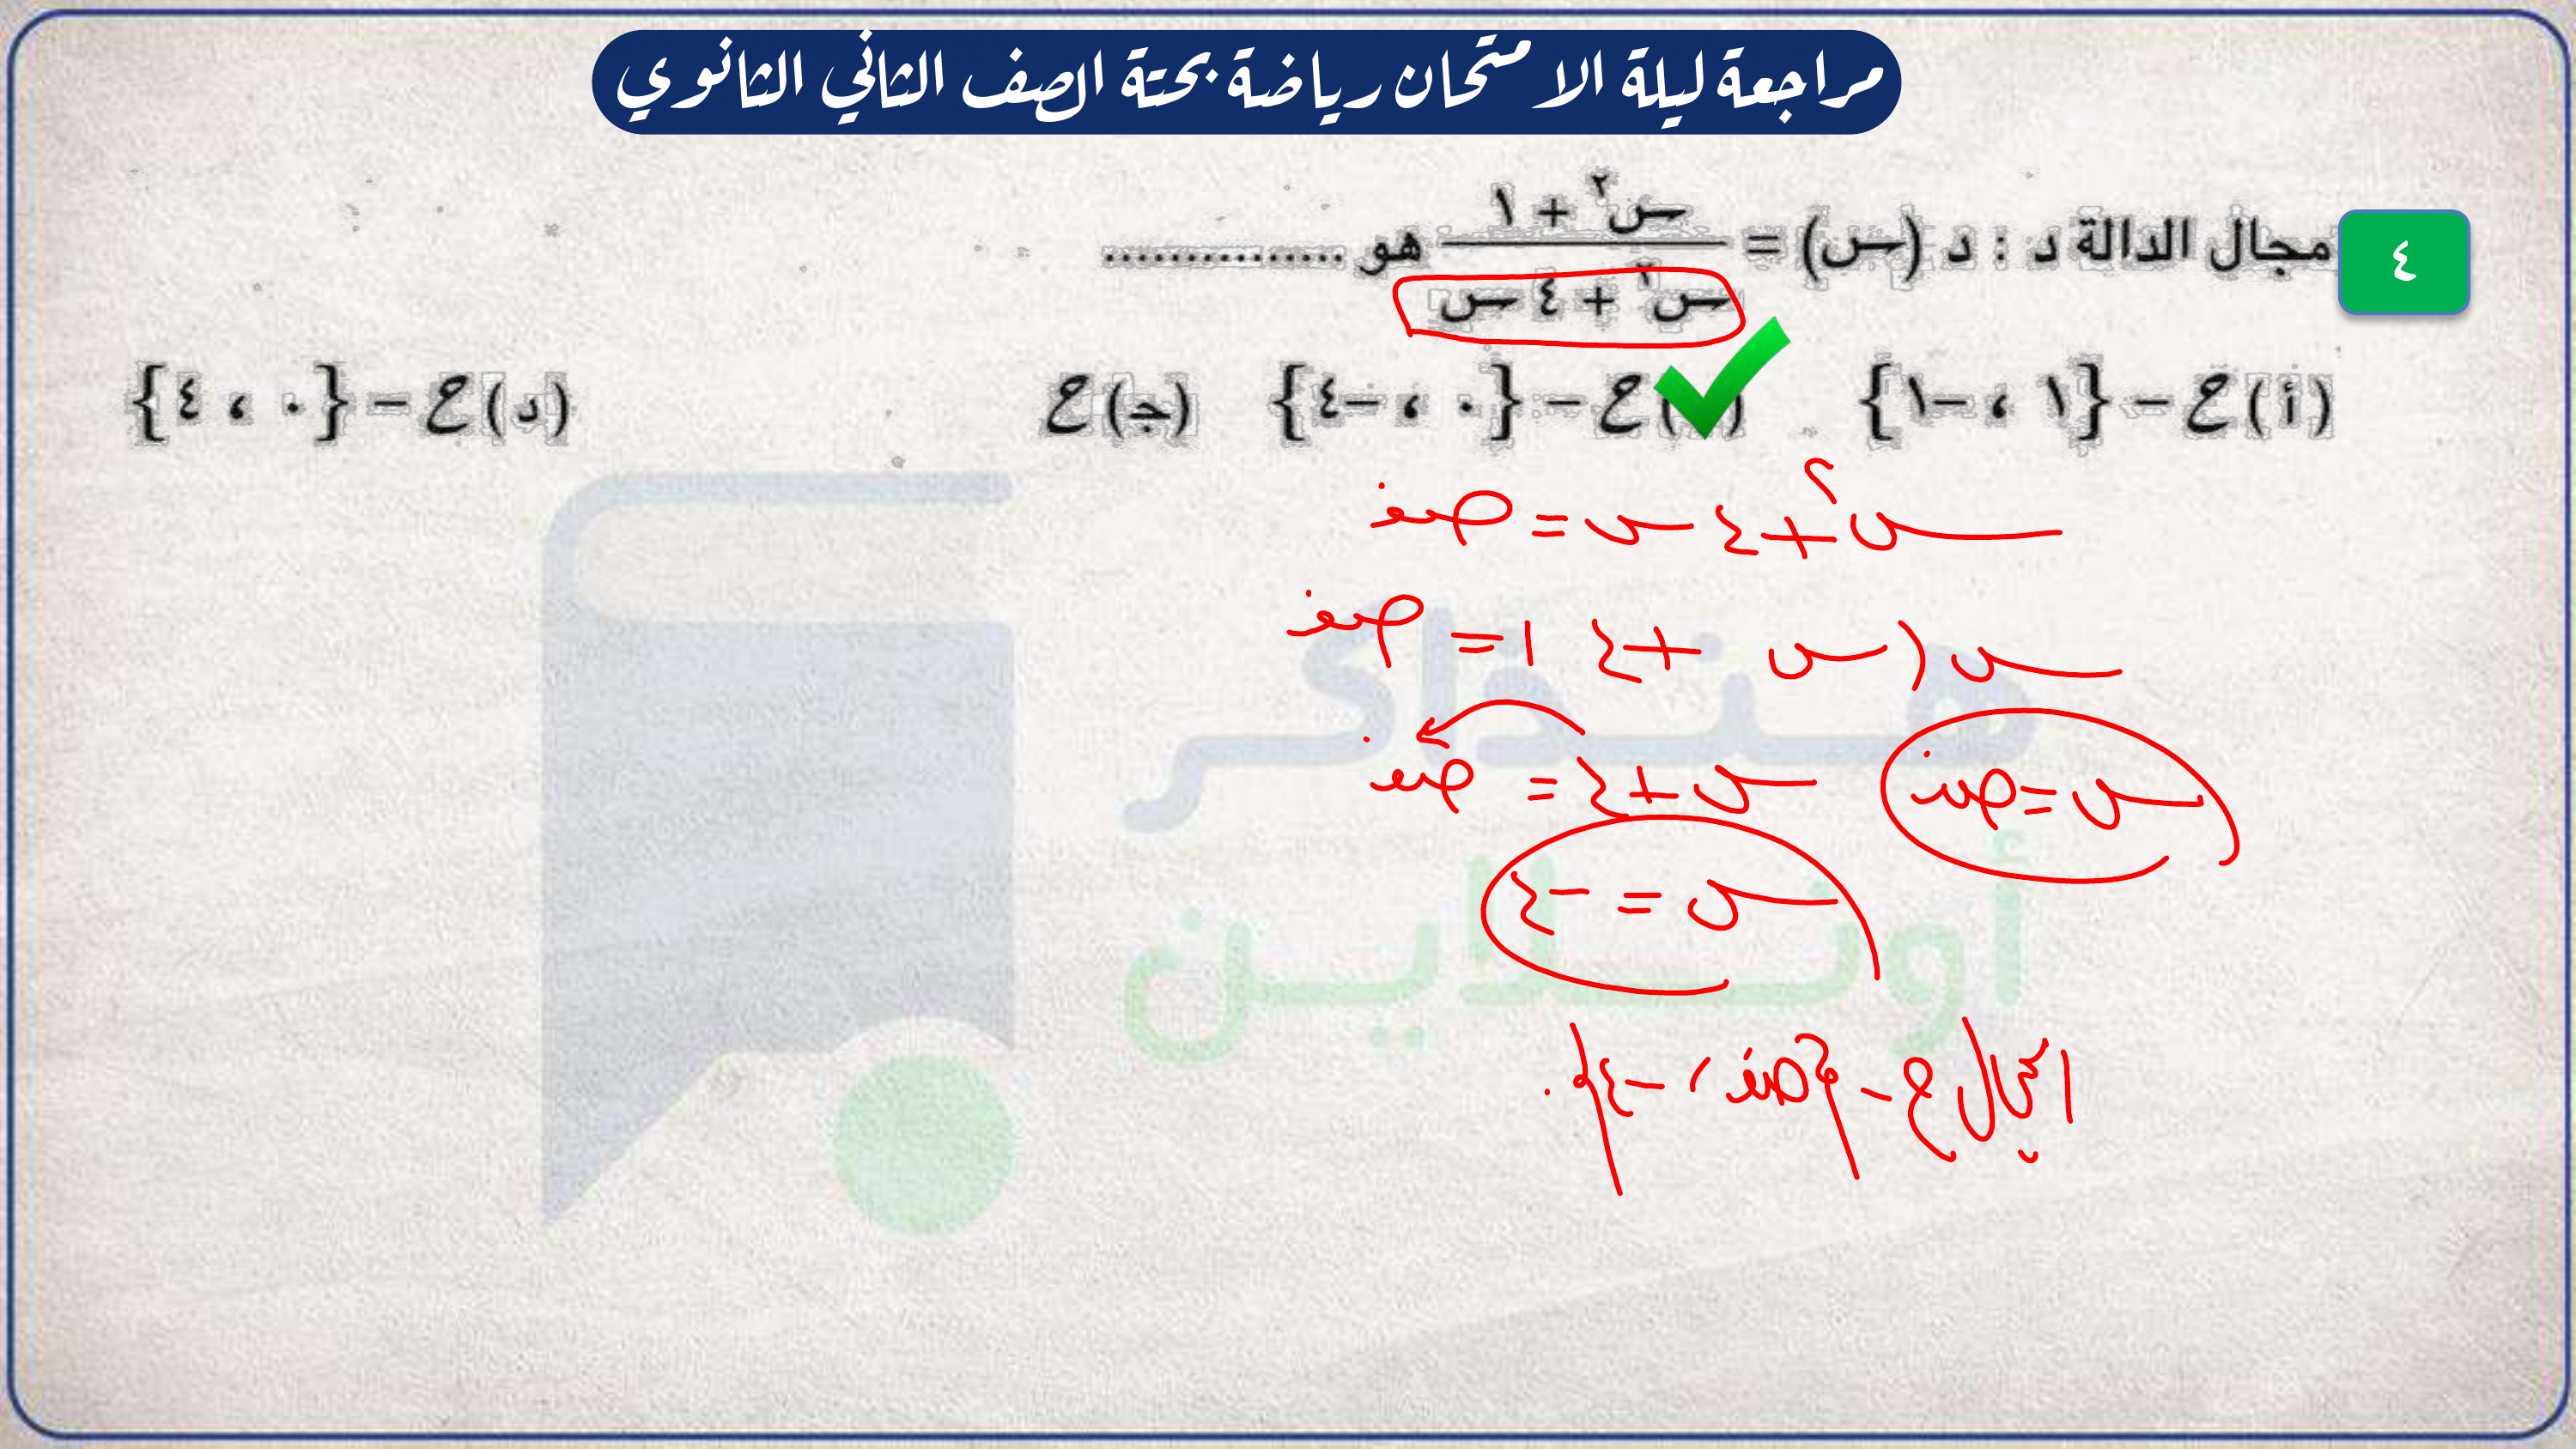 مراجعة ليلة الامتحان رياضة بحتة الصف الثاني الثانوي
٤
مجال الدالة د : د (س) = (س٢ + ١) / (س٢ + ٤ س) هو ...............
(أ) ح − {١ ، −١}
) ح − {٠ ، −٤}
(جـ) ح
(د) ح − {٠ ، ٤}
س٢ + ٤ س = صفر
س (س + ٤) = صفر
س = صفر س + ٤ = صفر
س = −٤
المجال ح − {صفر ، −٤}
هنذاكر
أونلاين